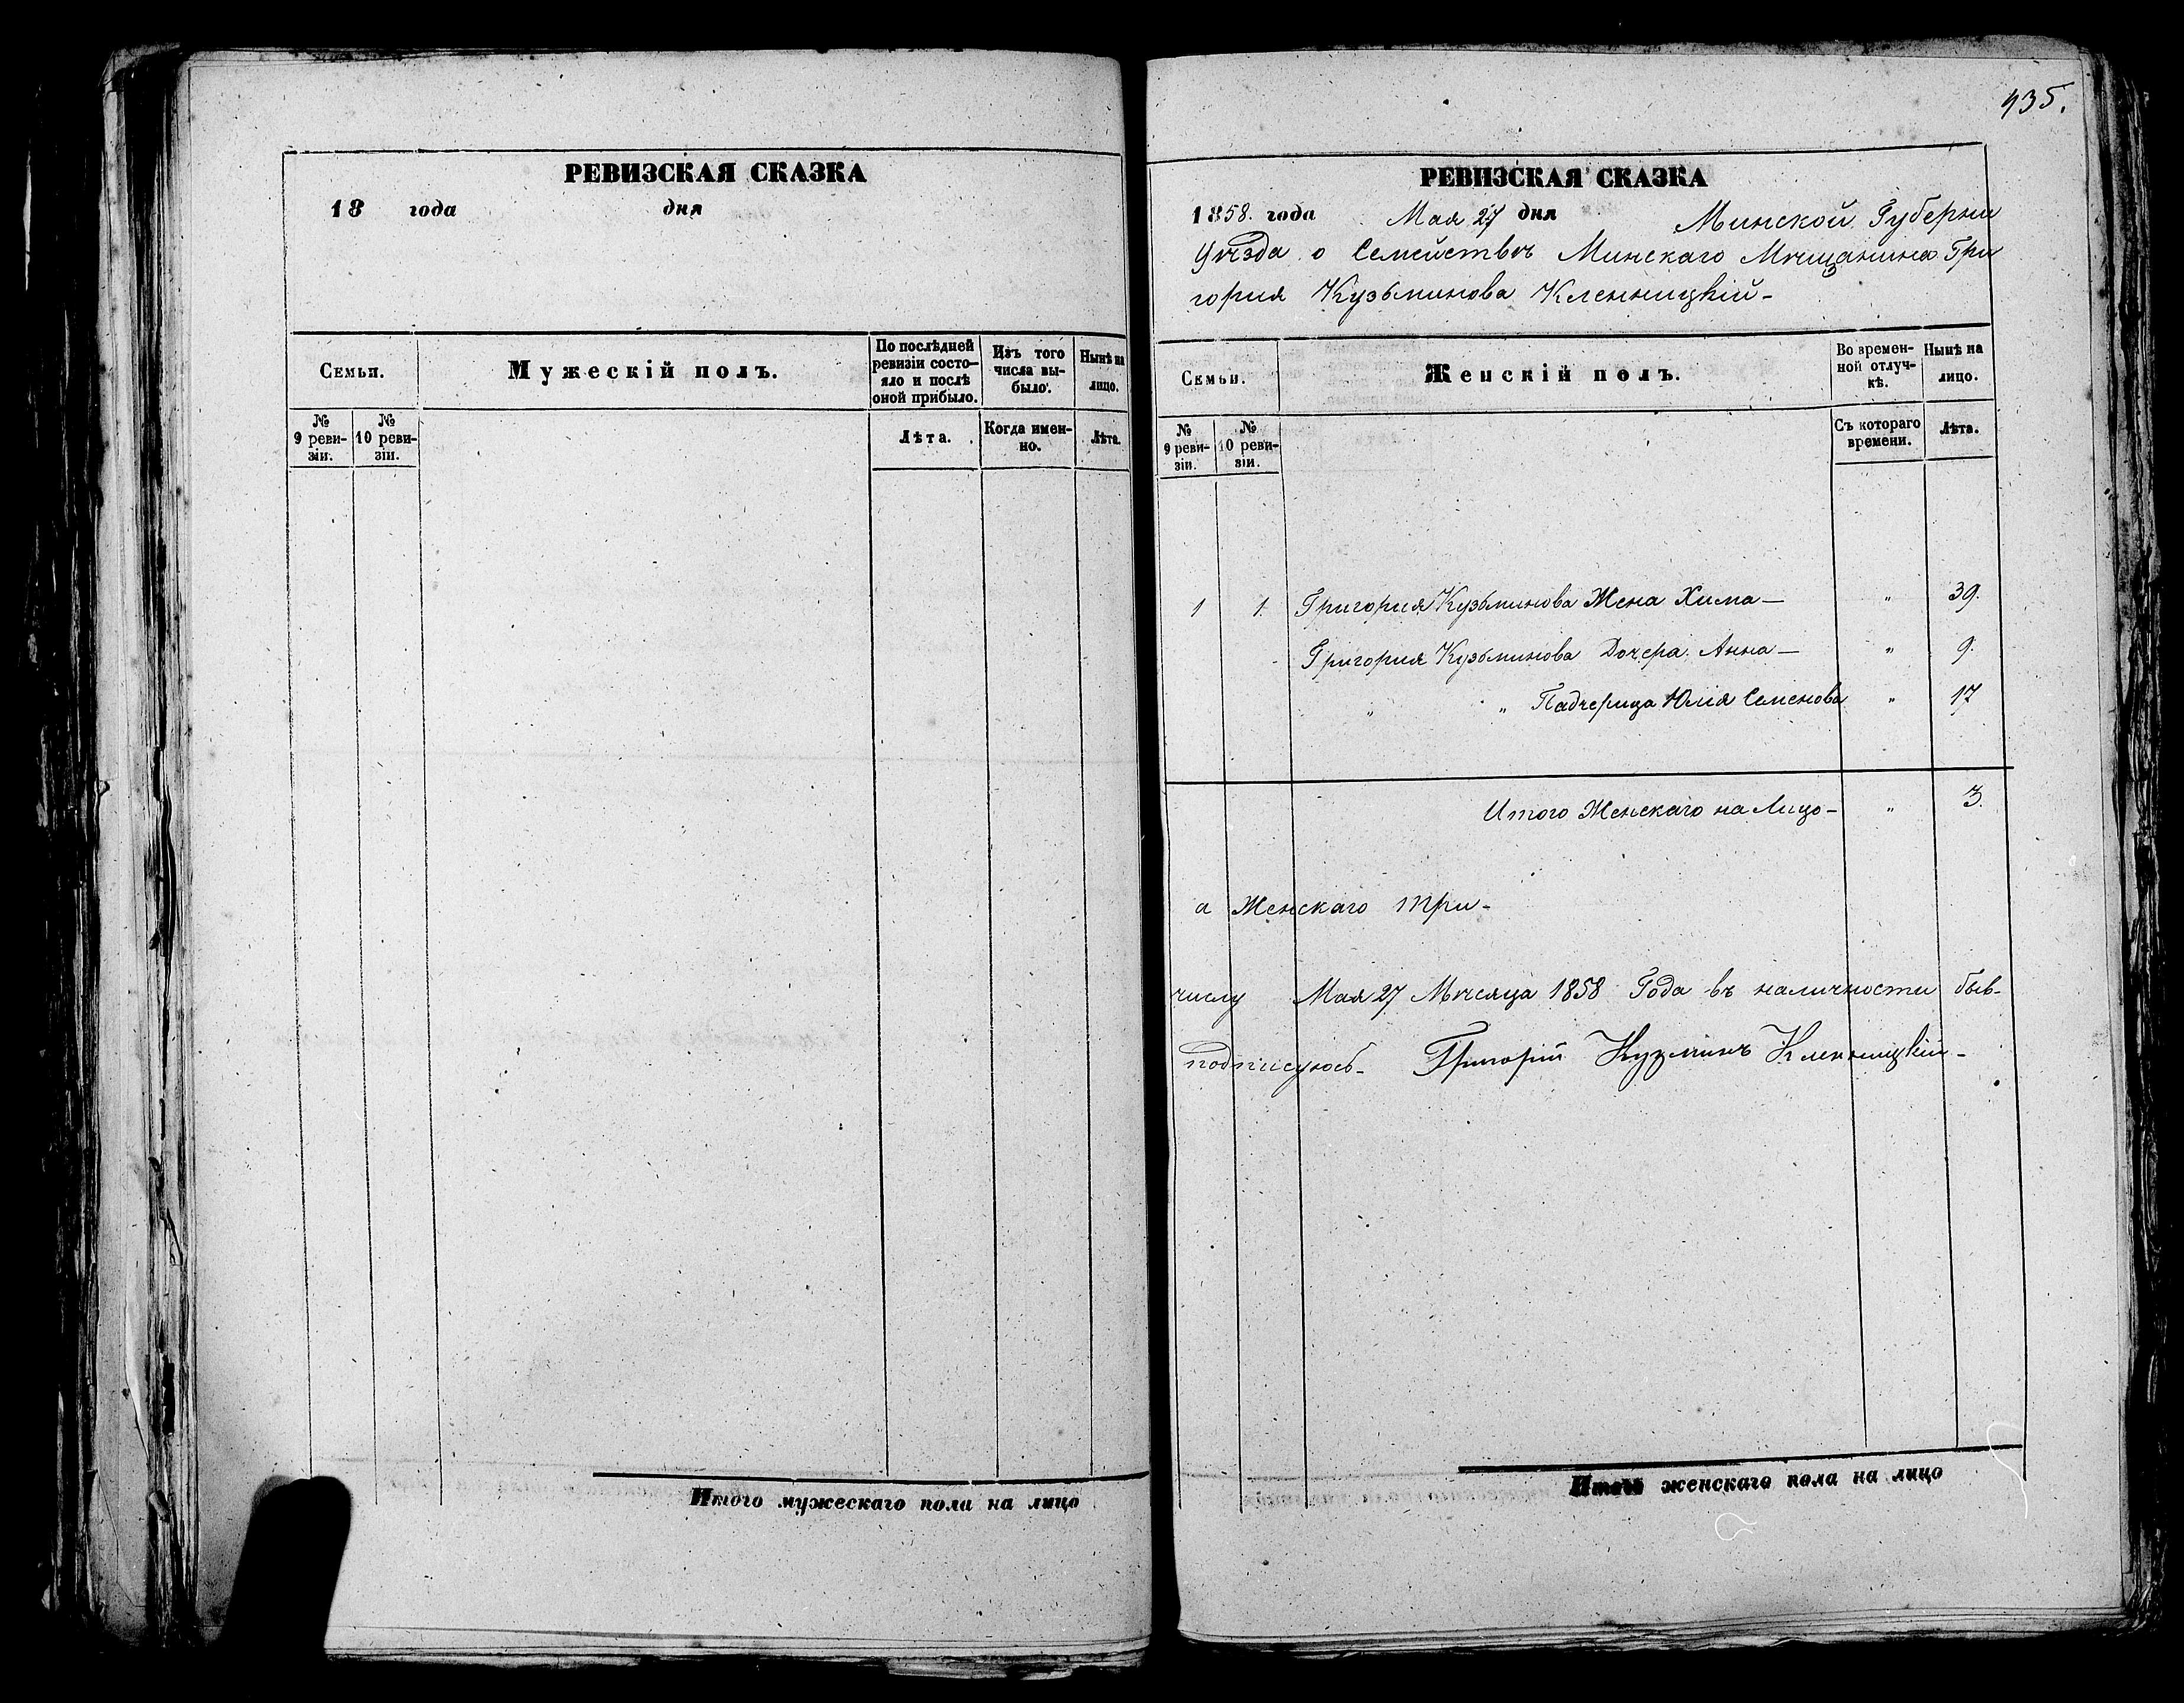 РЕВИЗСКАЯ СКАЗКА
18 года дня
Семьи.
Мужескій полъ.
По послѣдней ревизіи состояло и послѣ оной прибыло.
Изъ того числа выбыло.
Нынѣ на лицо.
№ 9 ревизіи.
№ 10 ревизіи.
Лѣта.
Когда именно.
Лѣта.
Итого мужескаго пола на лицо
935.
РЕВИЗСКАЯ СКАЗКА
1858. года Мая 27 дня Минской Губерни
Уѣзда о Семействѣ Минскаго Мѣщанина Гри
гория Кузьминова Кленницкій-
Семьи.
Женскій полъ.
Во временной отлучкѣ.
Нынѣ на лицо.
№ 9 ревизіи.
№ 10 ревизіи.
Съ котораго времени.
Лѣта.
1 1 Григория Кузьминова Жена Хима — " 39.
Григория Кузьминова Дочера Анна — " 9.
" " Падчерица Юлія Семенова " 17
Итого Женскаго на Лицо- " 3.
а Женскаго три-
числу Мая 27 Мѣсяца 1858 Года въ наличности быв-
подписуюсь- Григорій Кузминъ Кленницкій-
Итого женскаго пола на лицо